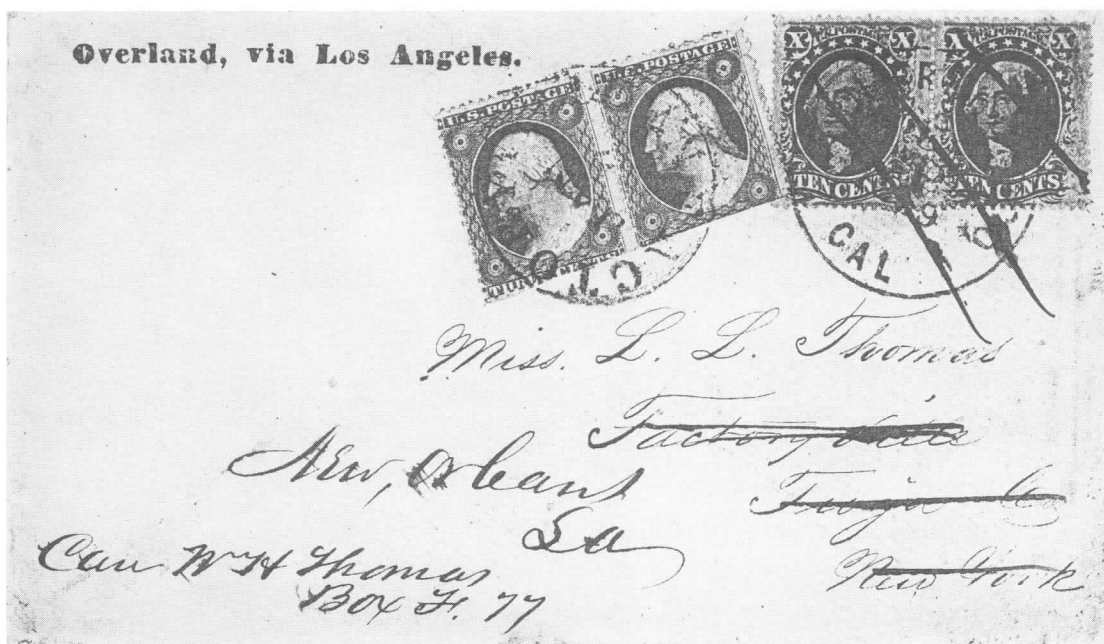 Overland, via Los Angeles.
U.S. POSTAGE
U.S. POSTAGE
X U.S. POSTAGE X
X U.S. POSTAGE X
TEN CENTS
TEN CENTS
CAL
Miss. L. L. Thomas
Factoryville
Tioga Co
New York
New, Orleans
La
Care W H Thomas
Box F. 77